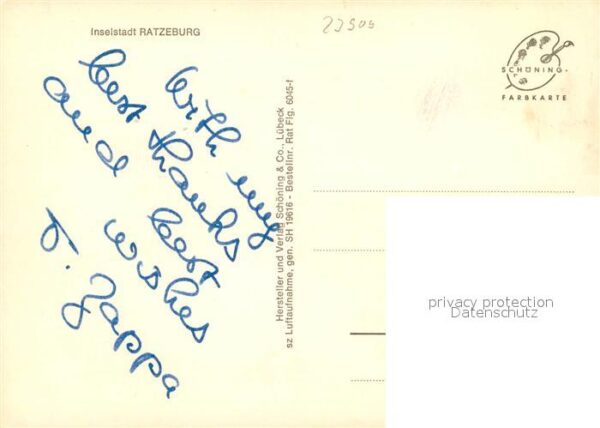 Inselstadt RATZEBURG
With my
best thanks
and best
wishes
F. Zappa
Hersteller und Verlag Schöning & Co., Lübeck
sz Luftaufnahme, gen. SH 19616 - Bestellnr. Rat Flg. 6045-f
SCHÖNING-
FARBKARTE
privacy protection
Datenschutz